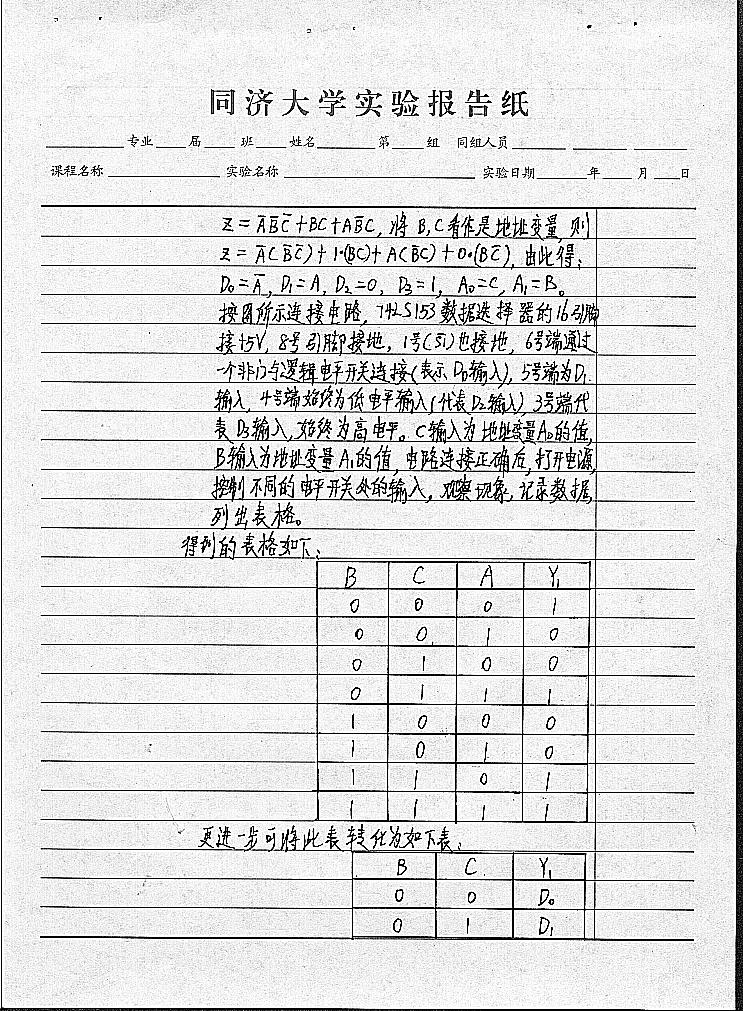 同济大学实验报告纸
专业 届 班 姓名 第 组 同组人员
课程名称 实验名称 实验日期 年 月 日
Z = A̅B̅C̅ + BC + AB̅C, 将 B,C看作是地址变量, 则
Z = A̅(B̅C̅) + 1·(BC) + A(B̅C) + 0·(BC̅), 由此得:
D₀=A̅, D₁=A, D₂=0, D₃=1, A₀=C, A₁=B。
按图所示连接电路, 74LS153数据选择器的16引脚
接+5V, 8号引脚接地, 1号(S̅1)也接地, 6号端通过
一个非门与逻辑电平开关连接(表示D₀输入), 5号端为D₁
输入, 4号端始终为低电平输入(代表D₂输入), 3号端代
表D₃输入, 始终为高电平。C输入为地址变量A₀的值,
B输入为地址变量A₁的值, 电路连接正确后, 打开电源,
控制不同的电平开关处的输入, 观察现象, 记录数据,
列出表格。
得到的表格如下:
B C A Y₁
0 0 0 1
0 0 1 0
0 1 0 0
0 1 1 1
1 0 0 0
1 0 1 0
1 1 0 1
1 1 1 1
更进一步可将此表转化为如下表:
B C Y₁
0 0 D₀
0 1 D₁